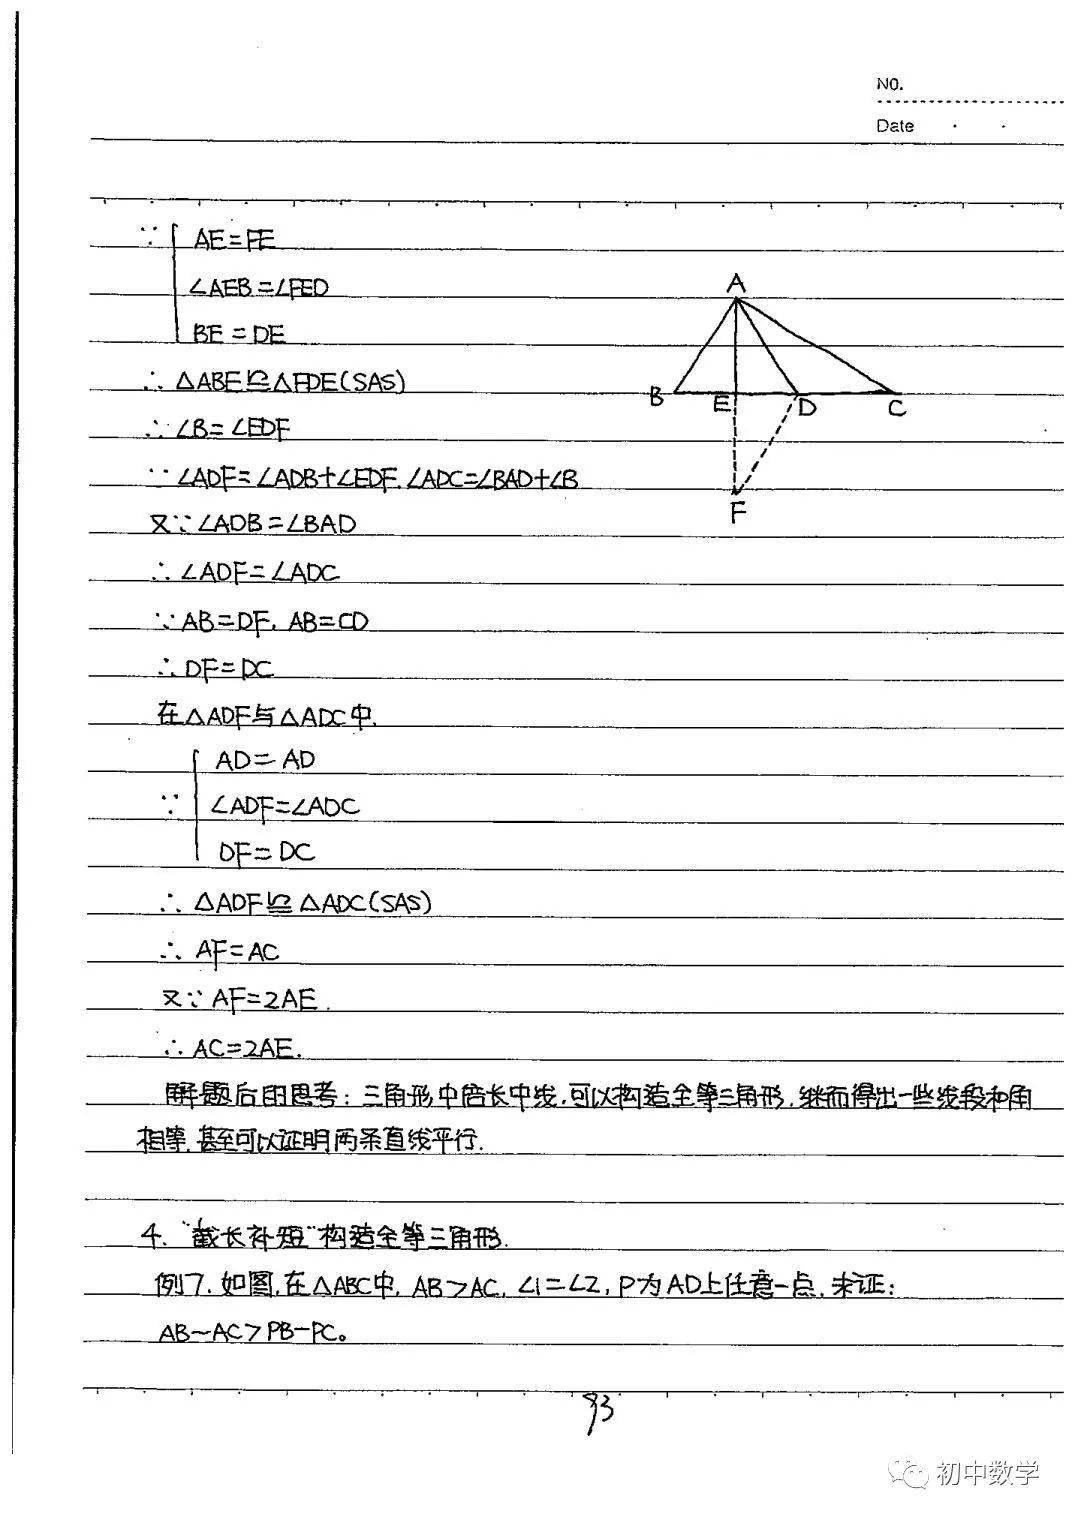 NO.
Date
∵ AE=FE
∠AEB=∠FED
BE=DE
∴△ABE≌△FDE(SAS)
∴∠B=∠EDF
∵∠ADF=∠ADB+∠EDF,∠ADC=∠BAD+∠B
又∵∠ADB=∠BAD
∴∠ADF=∠ADC
∵AB=DF,AB=CD
∴DF=DC
在△ADF与△ADC中,
AD=AD
∵ ∠ADF=∠ADC
DF=DC
∴△ADF≌△ADC(SAS)
∴AF=AC
又∵AF=2AE.
∴AC=2AE.
解题后的思考:三角形中倍长中线,可以构造全等三角形,继而得出一些线段和角
相等,甚至可以证明两条直线平行.
4."截长补短"构造全等三角形.
例7.如图,在△ABC中,AB>AC,∠1=∠2,P为AD上任意一点,求证:
AB-AC>PB-PC。
A
B
E
D
C
F
93
初中数学